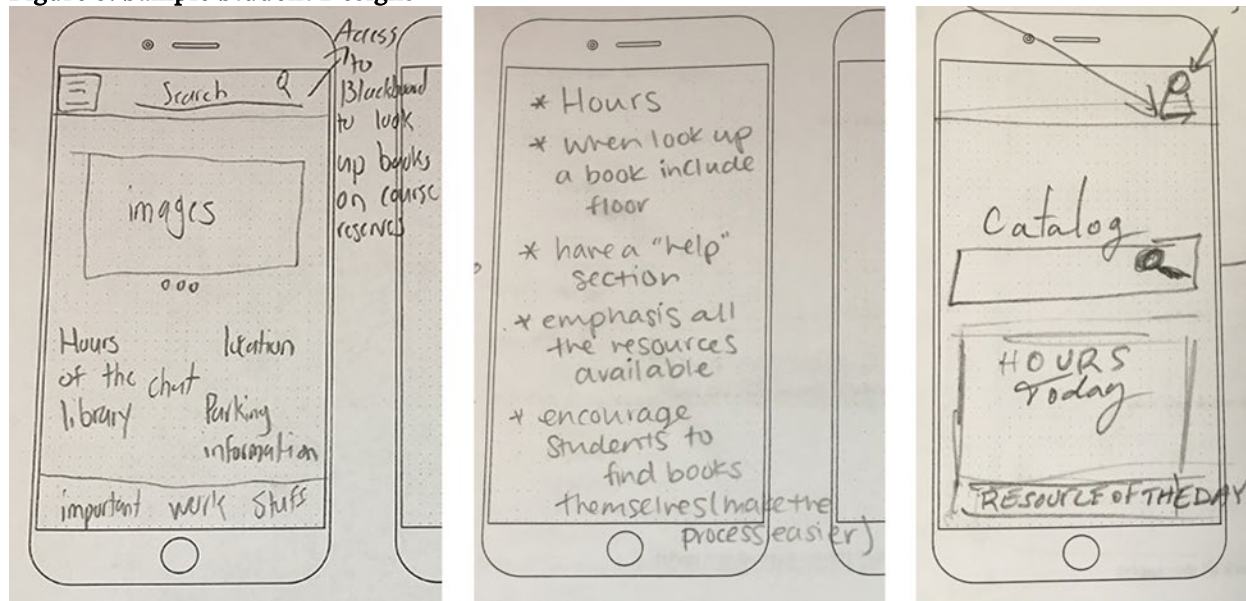 Search
Access
to
Blackboard
to look
up books
on course
reserves
images
Hours
of the
library
chat
location
Parking
information
important work stuffs
* Hours
* when look up
a book include
floor
* have a "help"
section
* emphasis all
the resources
available
* encourage
students to
find books
themselves (make the
process easier)
Catalog
HOURS
Today
RESOURCE OF THE DAY